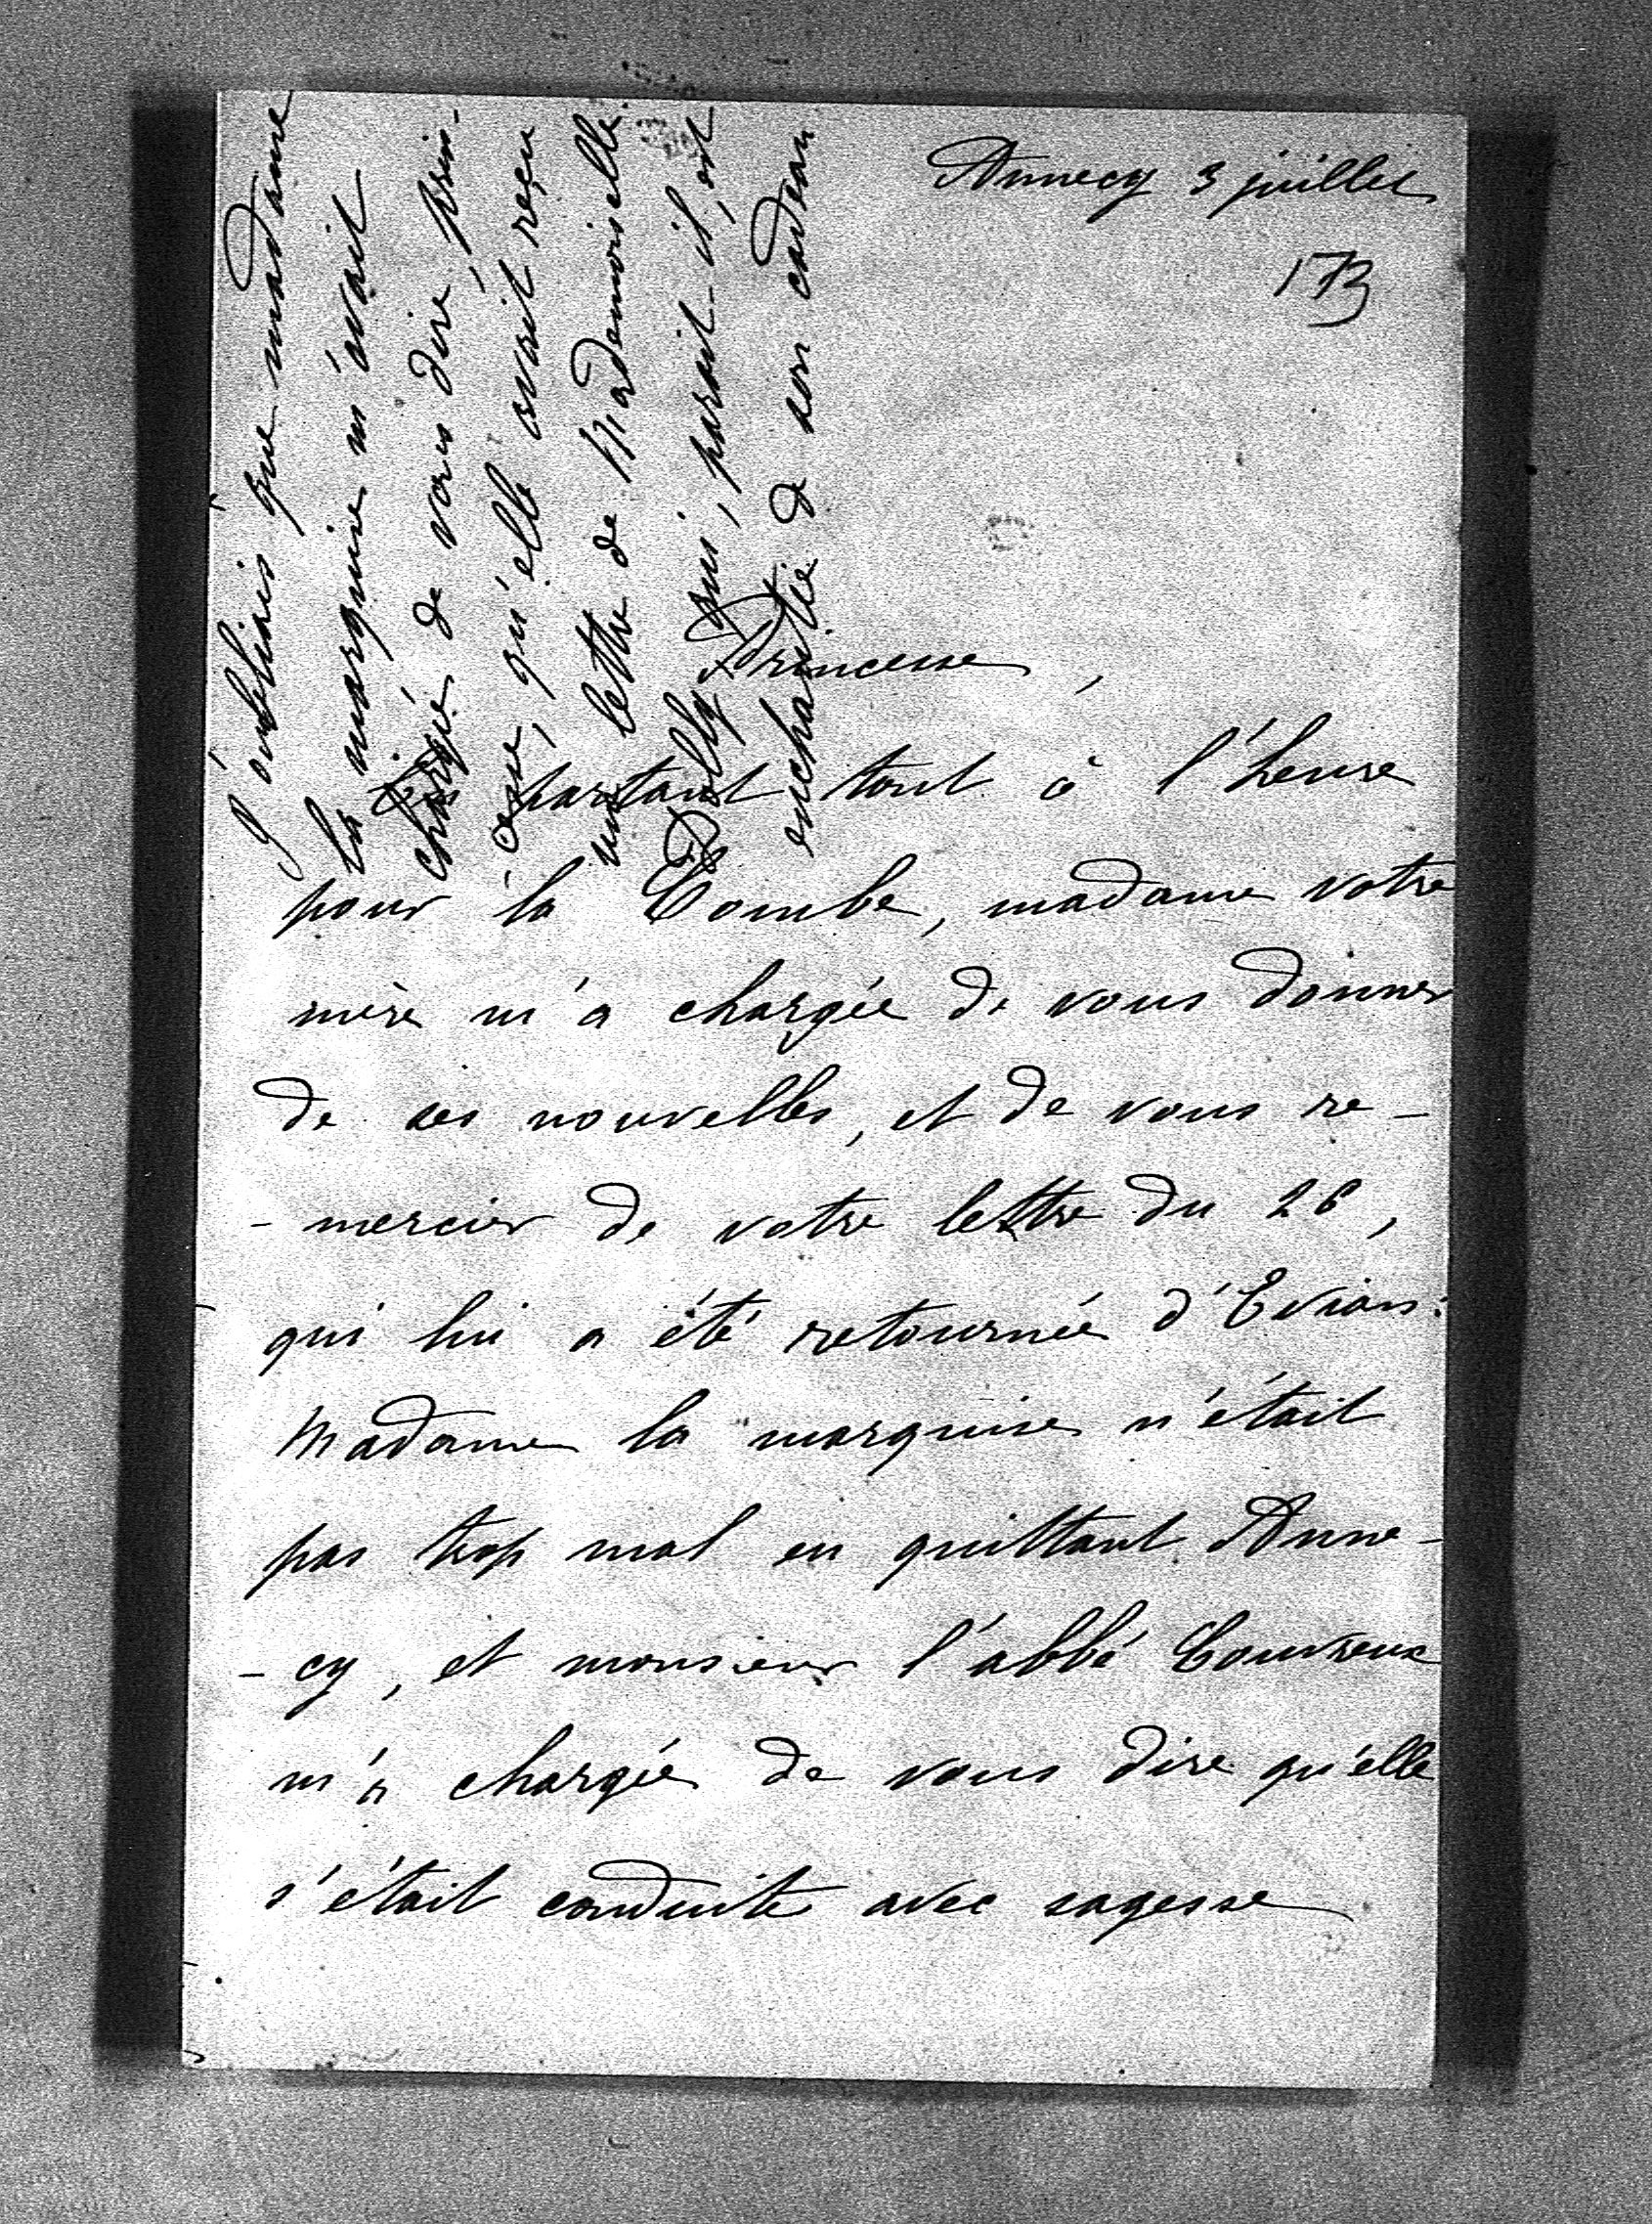 Annecy 3 juillet
173
Princesse,
En partant tout à l'heure
pour la Combe, madame votre
mère m'a chargée de vous donner
de ses nouvelles, et de vous re-
-mercier de votre lettre du 26,
qui lui a été retournée d'Evian:
Madame la marquise n'était
pas trop mal en quittant Anne-
-cy, et monsieur l'abbé Couvreux
m'a chargée de vous dire qu'elle
s'était conduite avec sagesse
J'oubliais que madame
la marquise m'avait
chargée de vous dire, prin-
-cesse, qu'elle avait reçu
une lettre de Mademoiselle
Dolly qui, parait-il, est
enchantée de son cadeau